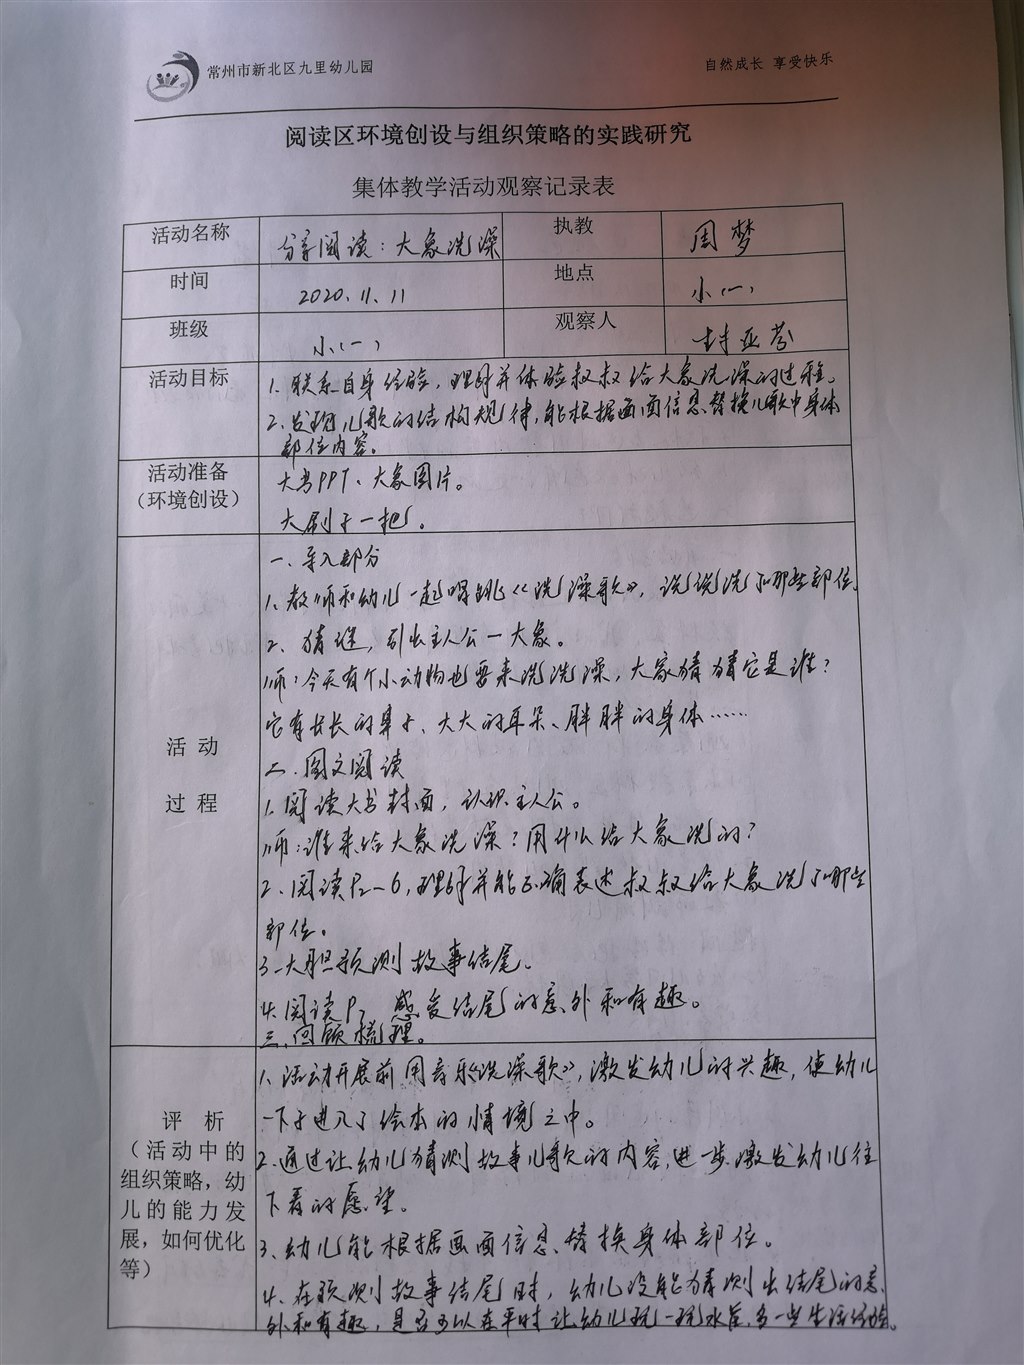 常州市新北区九里幼儿园
自然成长 享受快乐
阅读区环境创设与组织策略的实践研究
集体教学活动观察记录表
活动名称 分享阅读：大象洗澡 执教 周梦
时间 2020.11.11 地点 小（一）
班级 小（一） 观察人 封亚芬
活动目标
1. 联系自身经验，理解并体验叔叔给大象洗澡的过程。
2. 发现儿歌的结构规律，能根据画面信息替换儿歌中身体
部位内容。
活动准备
（环境创设）
大书PPT、大象图片。
大刷子一把。
活 动
过 程
一、导入部分
1. 教师和幼儿一起唱跳《洗澡歌》，说说洗了哪些部位。
2、猜谜，引出主人公一大象。
师：今天有个小动物也要来洗洗澡，大家猜猜它是谁？
它有长长的鼻子、大大的耳朵、胖胖的身体……
二、图文阅读
1. 阅读大书封面，认识主人公。
师：谁来给大象洗澡？用什么给大象洗的？
2、阅读P2-6，理解并能正确表述叔叔给大象洗了哪些
部位。
3、大胆预测故事结尾。
4. 阅读P7 感受结尾的意外和有趣。
三、回顾梳理。
评 析
（活动中的
组织策略，幼
儿的能力发
展，如何优化
等）
1、活动开展前用音乐《洗澡歌》，激发幼儿的兴趣，使幼儿
一下子进入了绘本的情境之中。
2. 通过让幼儿猜测故事儿歌的内容，进一步激发幼儿往
下看的愿望。
3、幼儿能根据画面信息替换身体部位。
4、在预测故事结尾时，幼儿没能猜测出结尾的意
外和有趣，是否可以在平时让幼儿玩一玩水后，多一些生活经验。